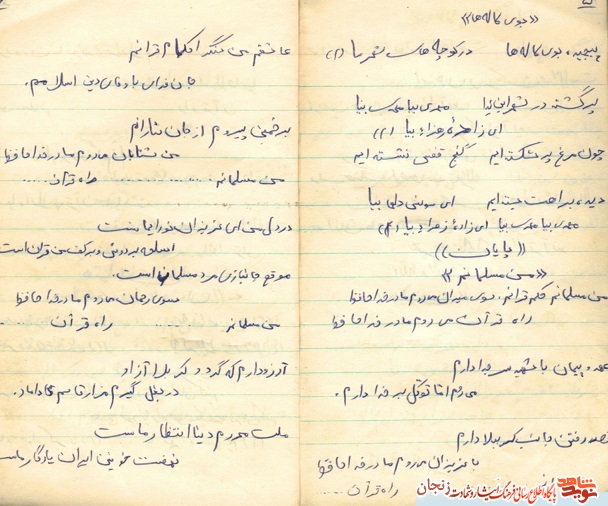 «بوی لاله‌ها»
پیچیده بوی لاله‌ها در کوچه‌های شهر ما (۲)
پر گشته در شهر این ندا مهدی بیا مهدی بیا
ای زاده زهرا بیا (۲)
چون مرغ پر شکسته‌ایم کنج قفس نشسته‌ایم
دیده براهت بسته‌ایم ای مونس دلها بیا
مهدی بیا مهدی بیا ای زاده زهرا بیا (۲)
((پایان))
«من مسلمانم ۳»
من مسلمانم حکم قرانم، سوی میدان میروم مادر خداحافظ
راه قرآن می روم مادر خداحافظ
عهد و پیمان با شهید سربدارم
میروم اما توکل بر خدا دارم.
قصد رفتن جانب کرببلا دارم
با عزیزان میروم مادر خداحافظ
راه قرآن ......
عاشقم من سنگر اسلام قرانم
جان فدای با وفای دین اسلامم.
بر خمینی پیروم از جان نثارانم
من شتابان میروم مادر خداحافظ
من مسلمانم ........ راه قرآن ......
در دل من ای عزیزان نور ایمانست
اسلحه بر دوش و بر کف من قرآن است
موقع جانبازی مرد مسلمان است.
سوی رحمان میروم مادر خداحافظ
من مسلمانم ........ راه قرآن ........
آرزو دارم که گردد کربلا آزاد
در بغل گیرم مزار قاسم داماد.
ملت محروم دنیا انتظار ماست
نهضت خونین ایران یادگار ماست
نوید شاهد
پایگاه اطلاع رسانی فرهنگ ایثار و شهادت زنجان